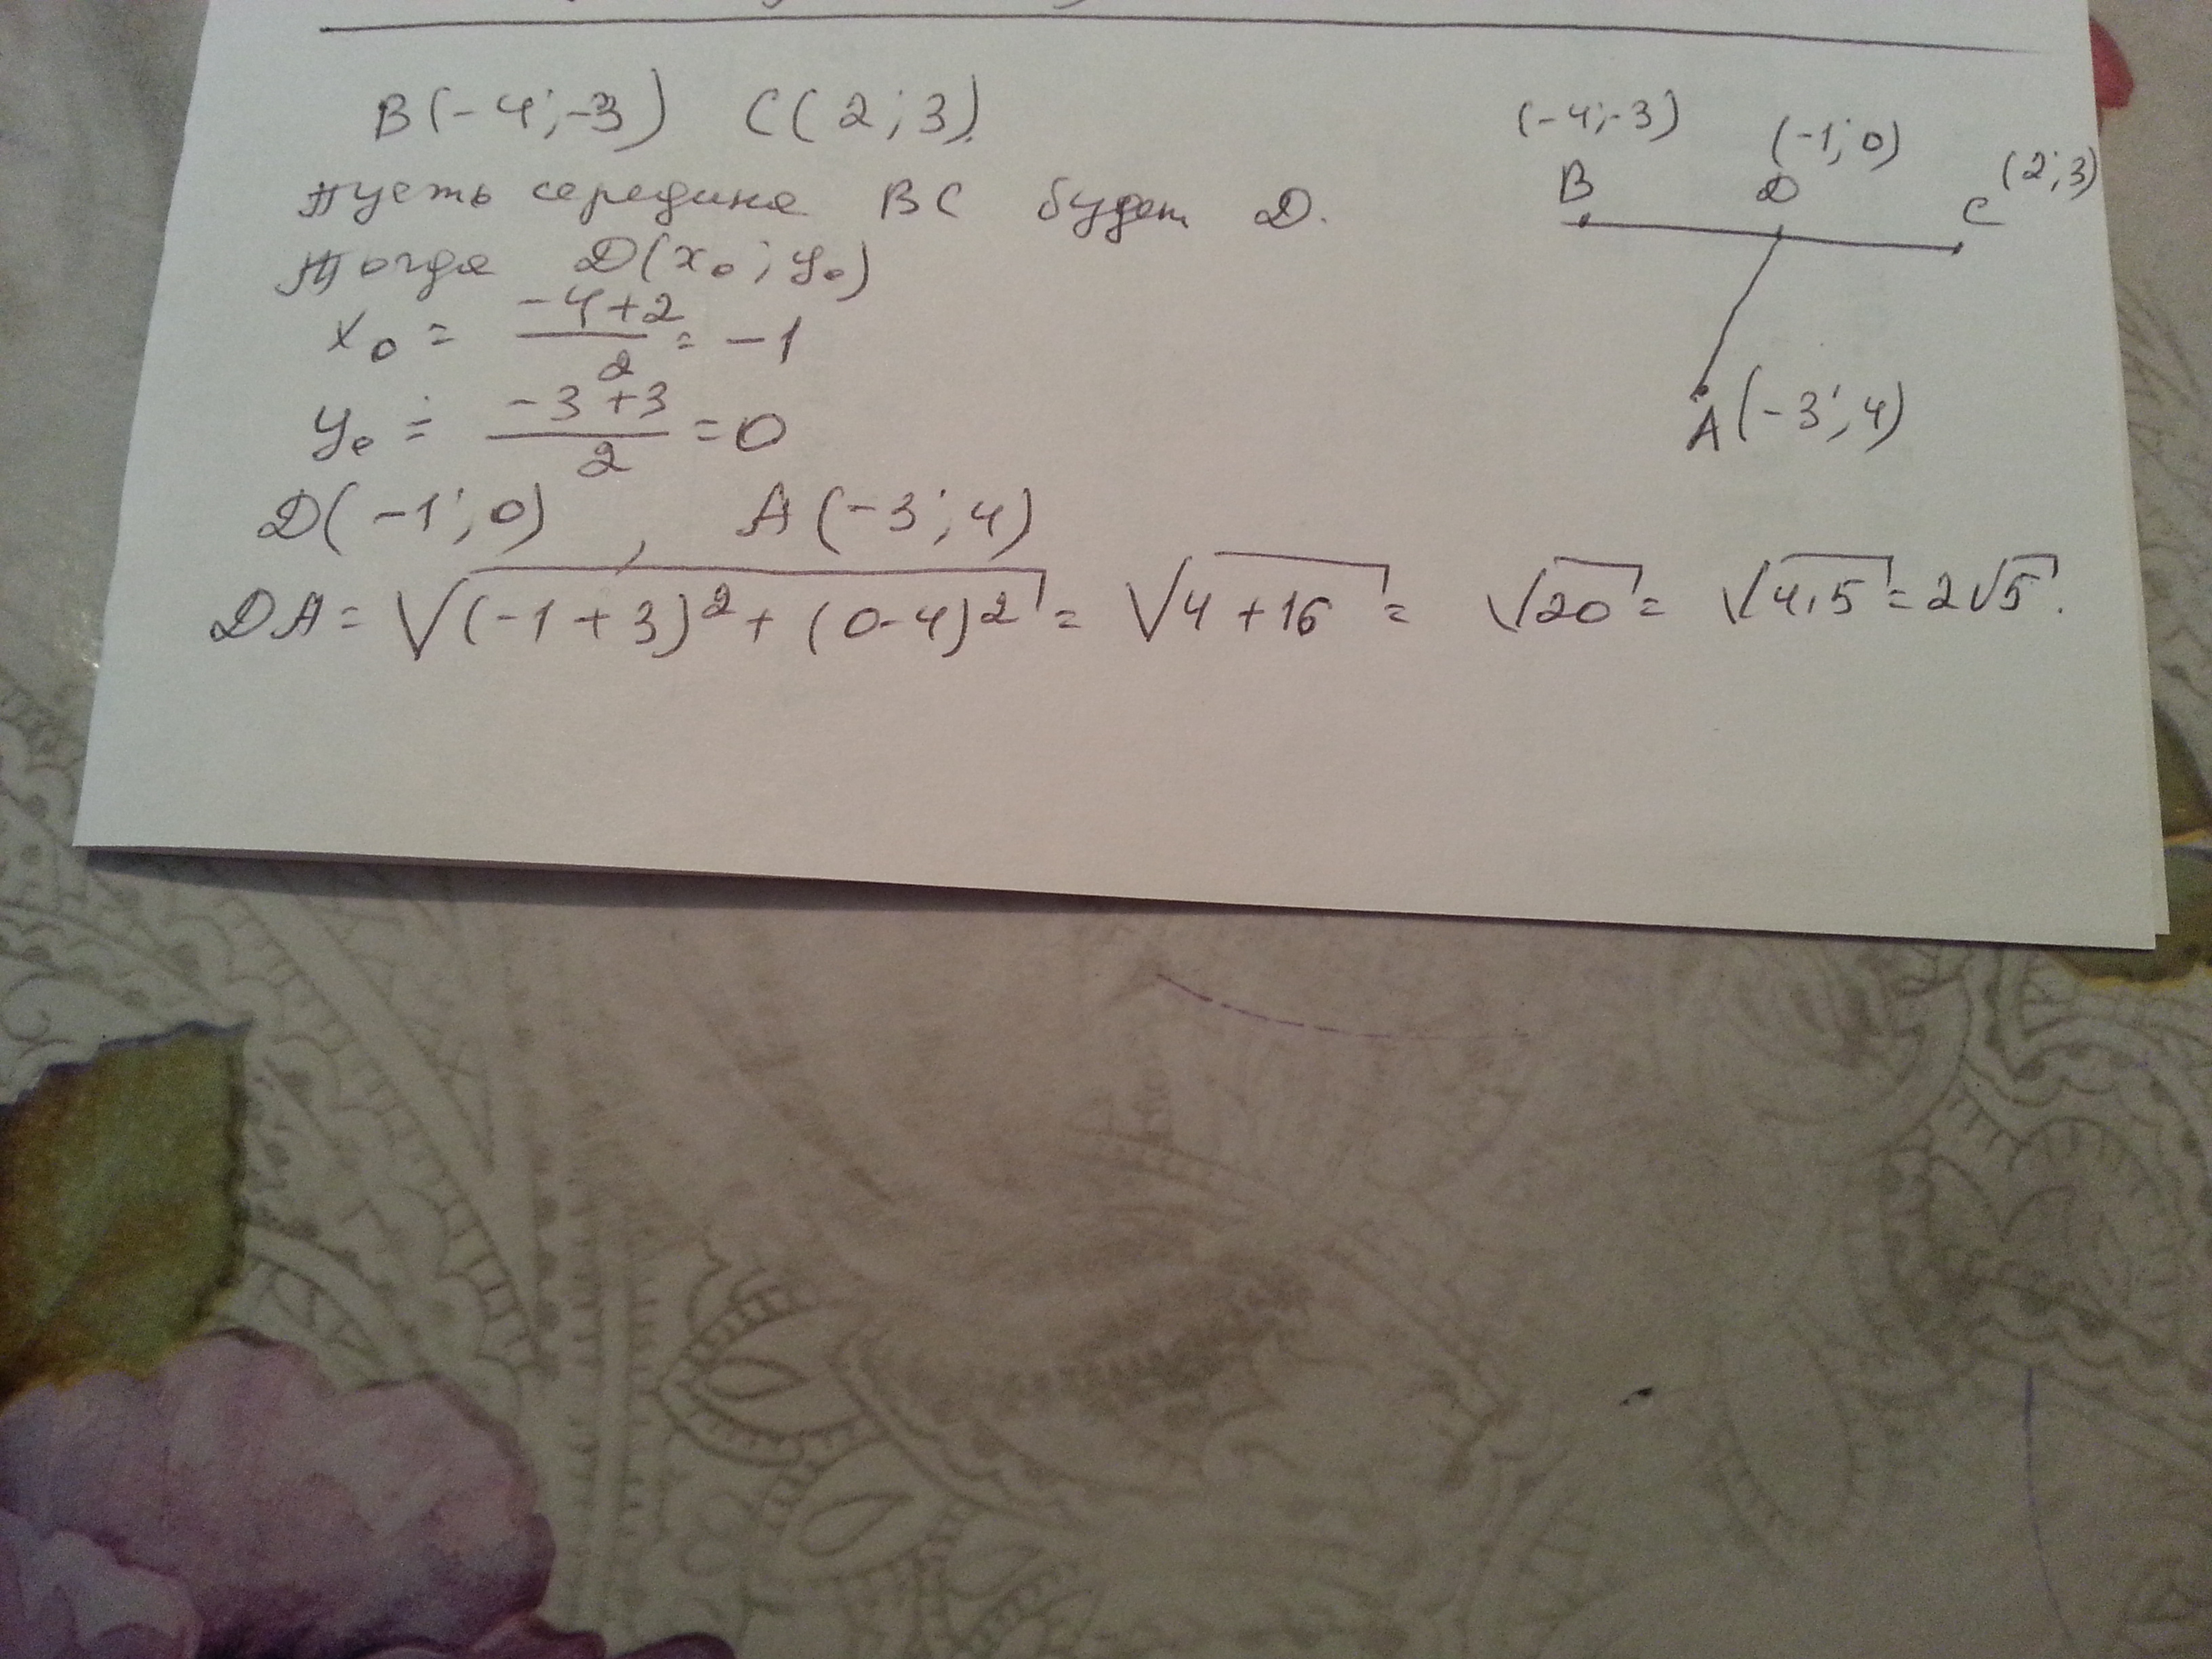 B(-4;-3) C(2;3).
Пусть середина BC будет D.
Тогда D(x₀; y₀)
x₀ = (-4+2)/2 = -1
y₀ = (-3+3)/2 = 0
D(-1;0), A(-3;4)
DA = √((-1+3)²+(0-4)²) = √(4+16) = √20 = √(4·5) = 2√5.
(-4;-3) (-1;0) (2;3)
B D C
A(-3;4)